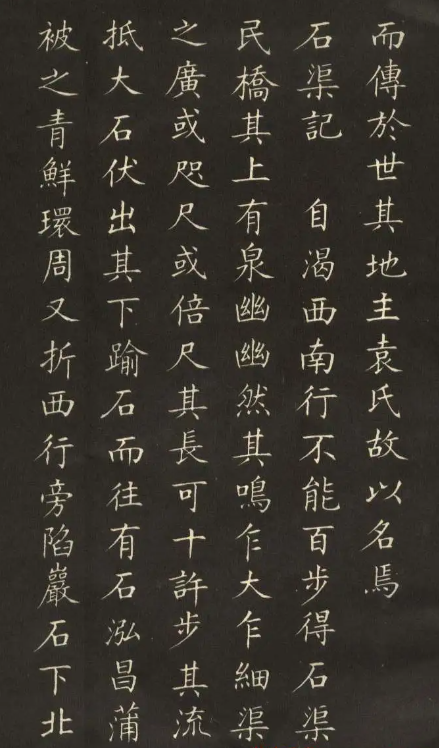 而傳於世其地主袁氏故以名焉
石渠記　自渴西南行不能百步得石渠
民橋其上有泉幽幽然其鳴乍大乍細渠
之廣或咫尺或倍尺其長可十許步其流
抵大石伏出其下踰石而往有石泓昌蒲
被之青鮮環周又折西行旁陷巖石下北